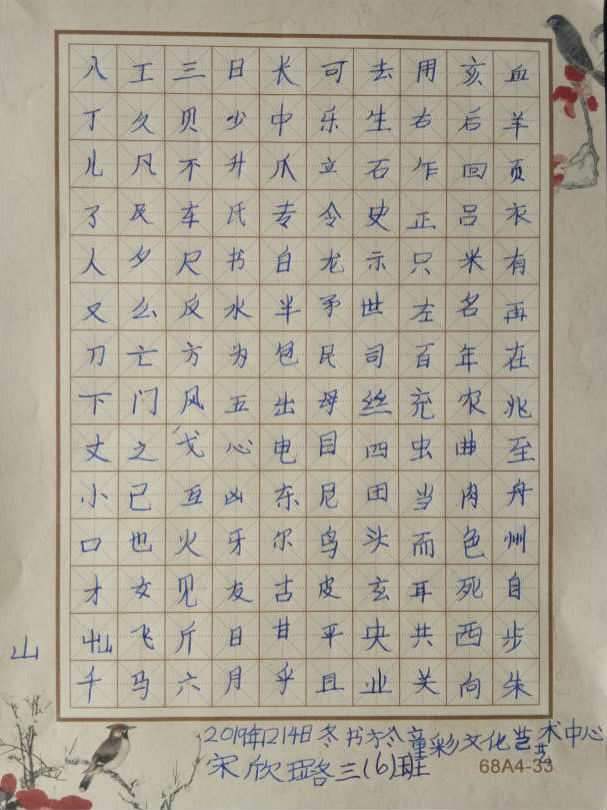 八工三日长可去用亥血
丁久贝少中乐生右后羊
儿凡不升爪立石乍回页
了及车氏专令史正吕衣
人夕尺书白龙示只米有
又么反水半予世左名再
刀亡方为包民司百年在
下门风五出母丝充农兆
丈之戈心电目四虫曲至
小己互凶东尼田当肉舟
口也火牙尔鸟头而色州
才女见友古皮玄耳死自
山飞斤日甘平央共西步
山
千马六月乎且业关向朱
2019年12月4日冬书方冬童彩文化艺术中心
宋欣璐三(6)班
68A4-33